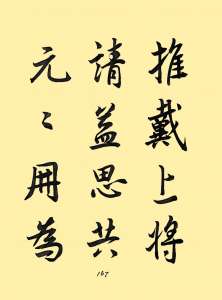 推戴上将
請益思共
元〻冊為
167